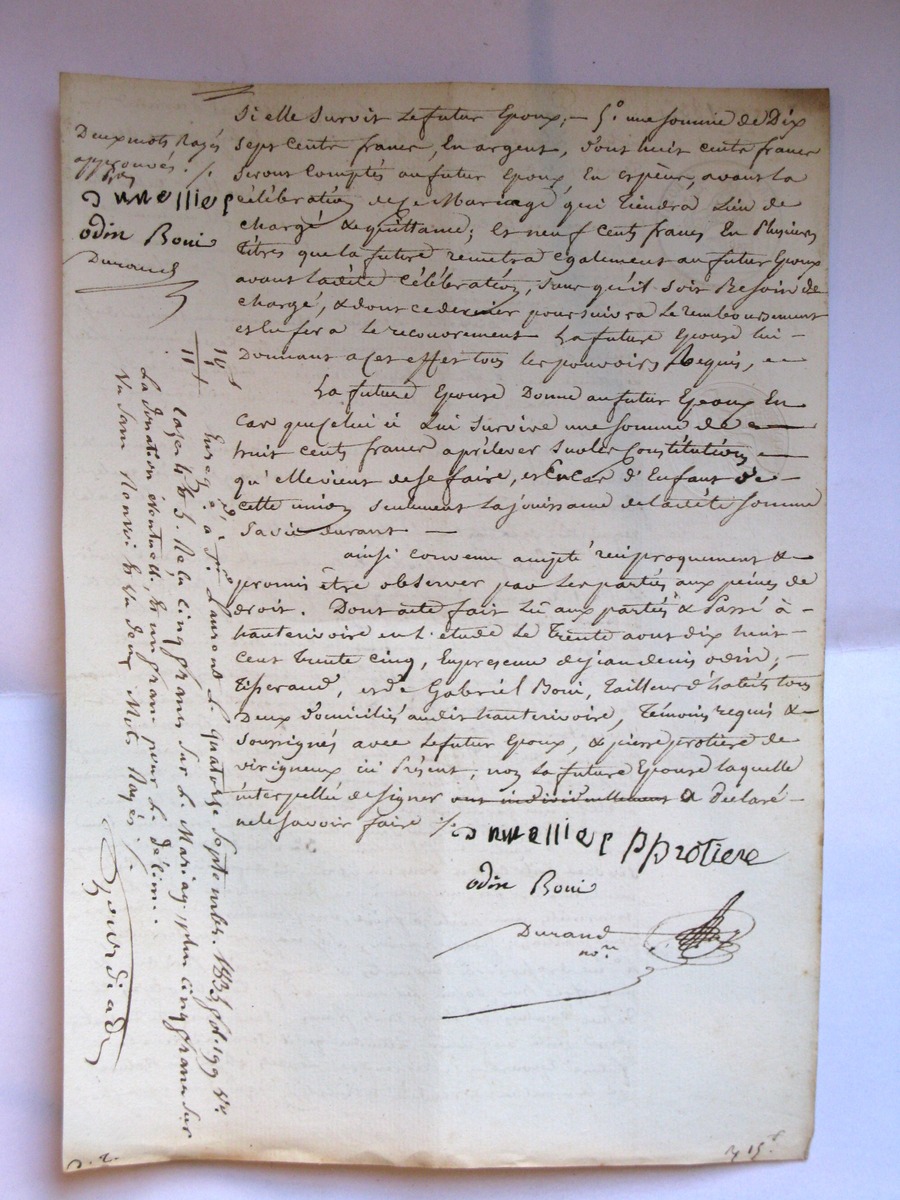 si elle survit le futur Epoux; — 5.° une somme de Dix
sept cents francs, En argent, dont huit cents francs
seront Comptés au futur Epoux, En espèces, avant la
célébration de ce Mariage, qui tiendra Lieu de
chargé & quittance; Et neuf cents francs En Plusieurs
titres que la future remettra également au futur Epoux
avant ladite célébration, sans qu'il soit Besoin de
chargé, & dont ce dernier poursuivra le remboursement
et En fera le recouvrement La future Epouse lui —
Donnant a cet effet tous les pouvoirs Requis, —
La future Epouse Donne au futur Epoux En
Cas que Celui ci Lui survive une somme de —
huit cents francs a prélever sur les Constitutions —
qu'elle vient de se faire, et En Cas d'Enfant de —
cette union seulement La jouissance de ladite somme
sa vie durant —
ainsi Convenu accepté réciproquement &
promis être observer par Les parties aux peines de
droit. Dont acte fait Lu aux parties & Passé à —
hauterivoire en l'étude Le Trente aout dix huit —
cent trente cinq, En presence de jean denis odin, —
Tisserand, et de Gabriel Boni, Tailleur d'habits tous
Deux domiciliés audit hauterivoire, Témoins requis &
soussignés avec Le futur Epoux, & pierre protiere de
virigneux ici Présent, non La future Epouse laquelle
interpellée de signer ont individuellement a Déclaré —
ne le savoir faire ./.
pprotiere
odin Boni
Durand
no.re
Deux mots Rayés
approuvés. /.
odin Boni
Durand
Enreg.é à St Laurent le quatorze septembre 1835 fol. 199 v.o
Cases 4 & 5. Reçu cinq francs sur le Mariage, plus cinq francs sur
La donation éventuelle, & un franc pour le décime.
Vu sans Renvoi & vu deux Mots Rayés ./.